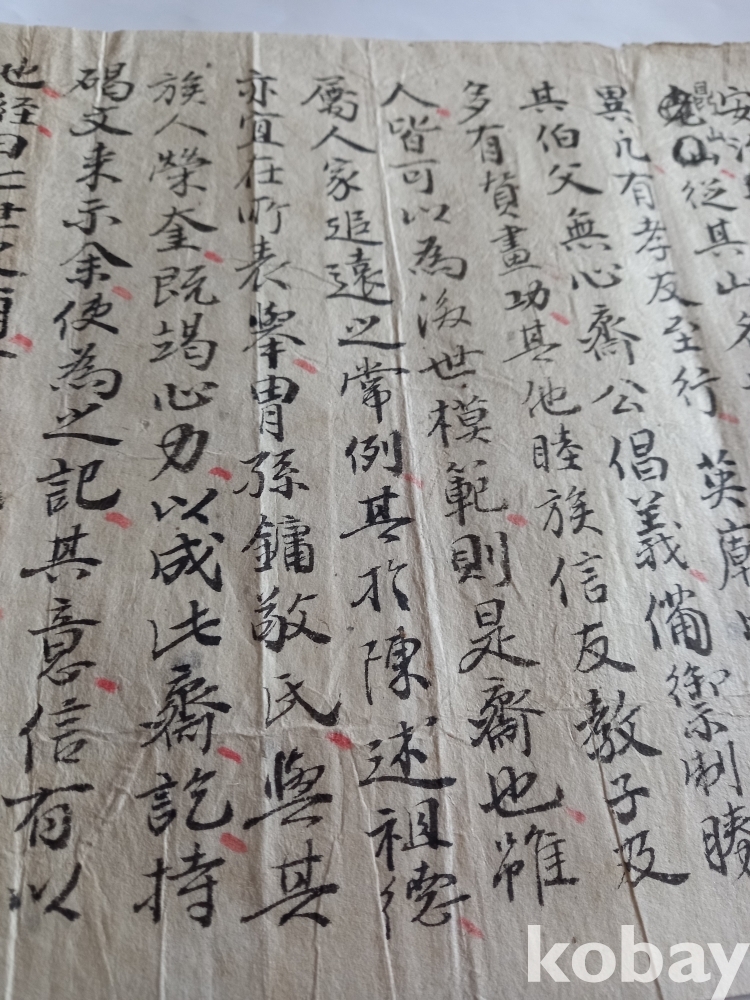 安
昆山從其山
異凡有孝友至行英摩
其伯父無心齋公倡義備禦制勝
多有贊畫功其他睦族信友教子及
人皆可以為後世模範則是齋也雖
屬人家追遠之常例其於陳述祖德
亦宜在所表擧冑孫鏞敬氏與其
族人榮奎既竭心力以成此齋訖持
碣文来示余使為之記其意信有以
也經曰七世之廟
kobay